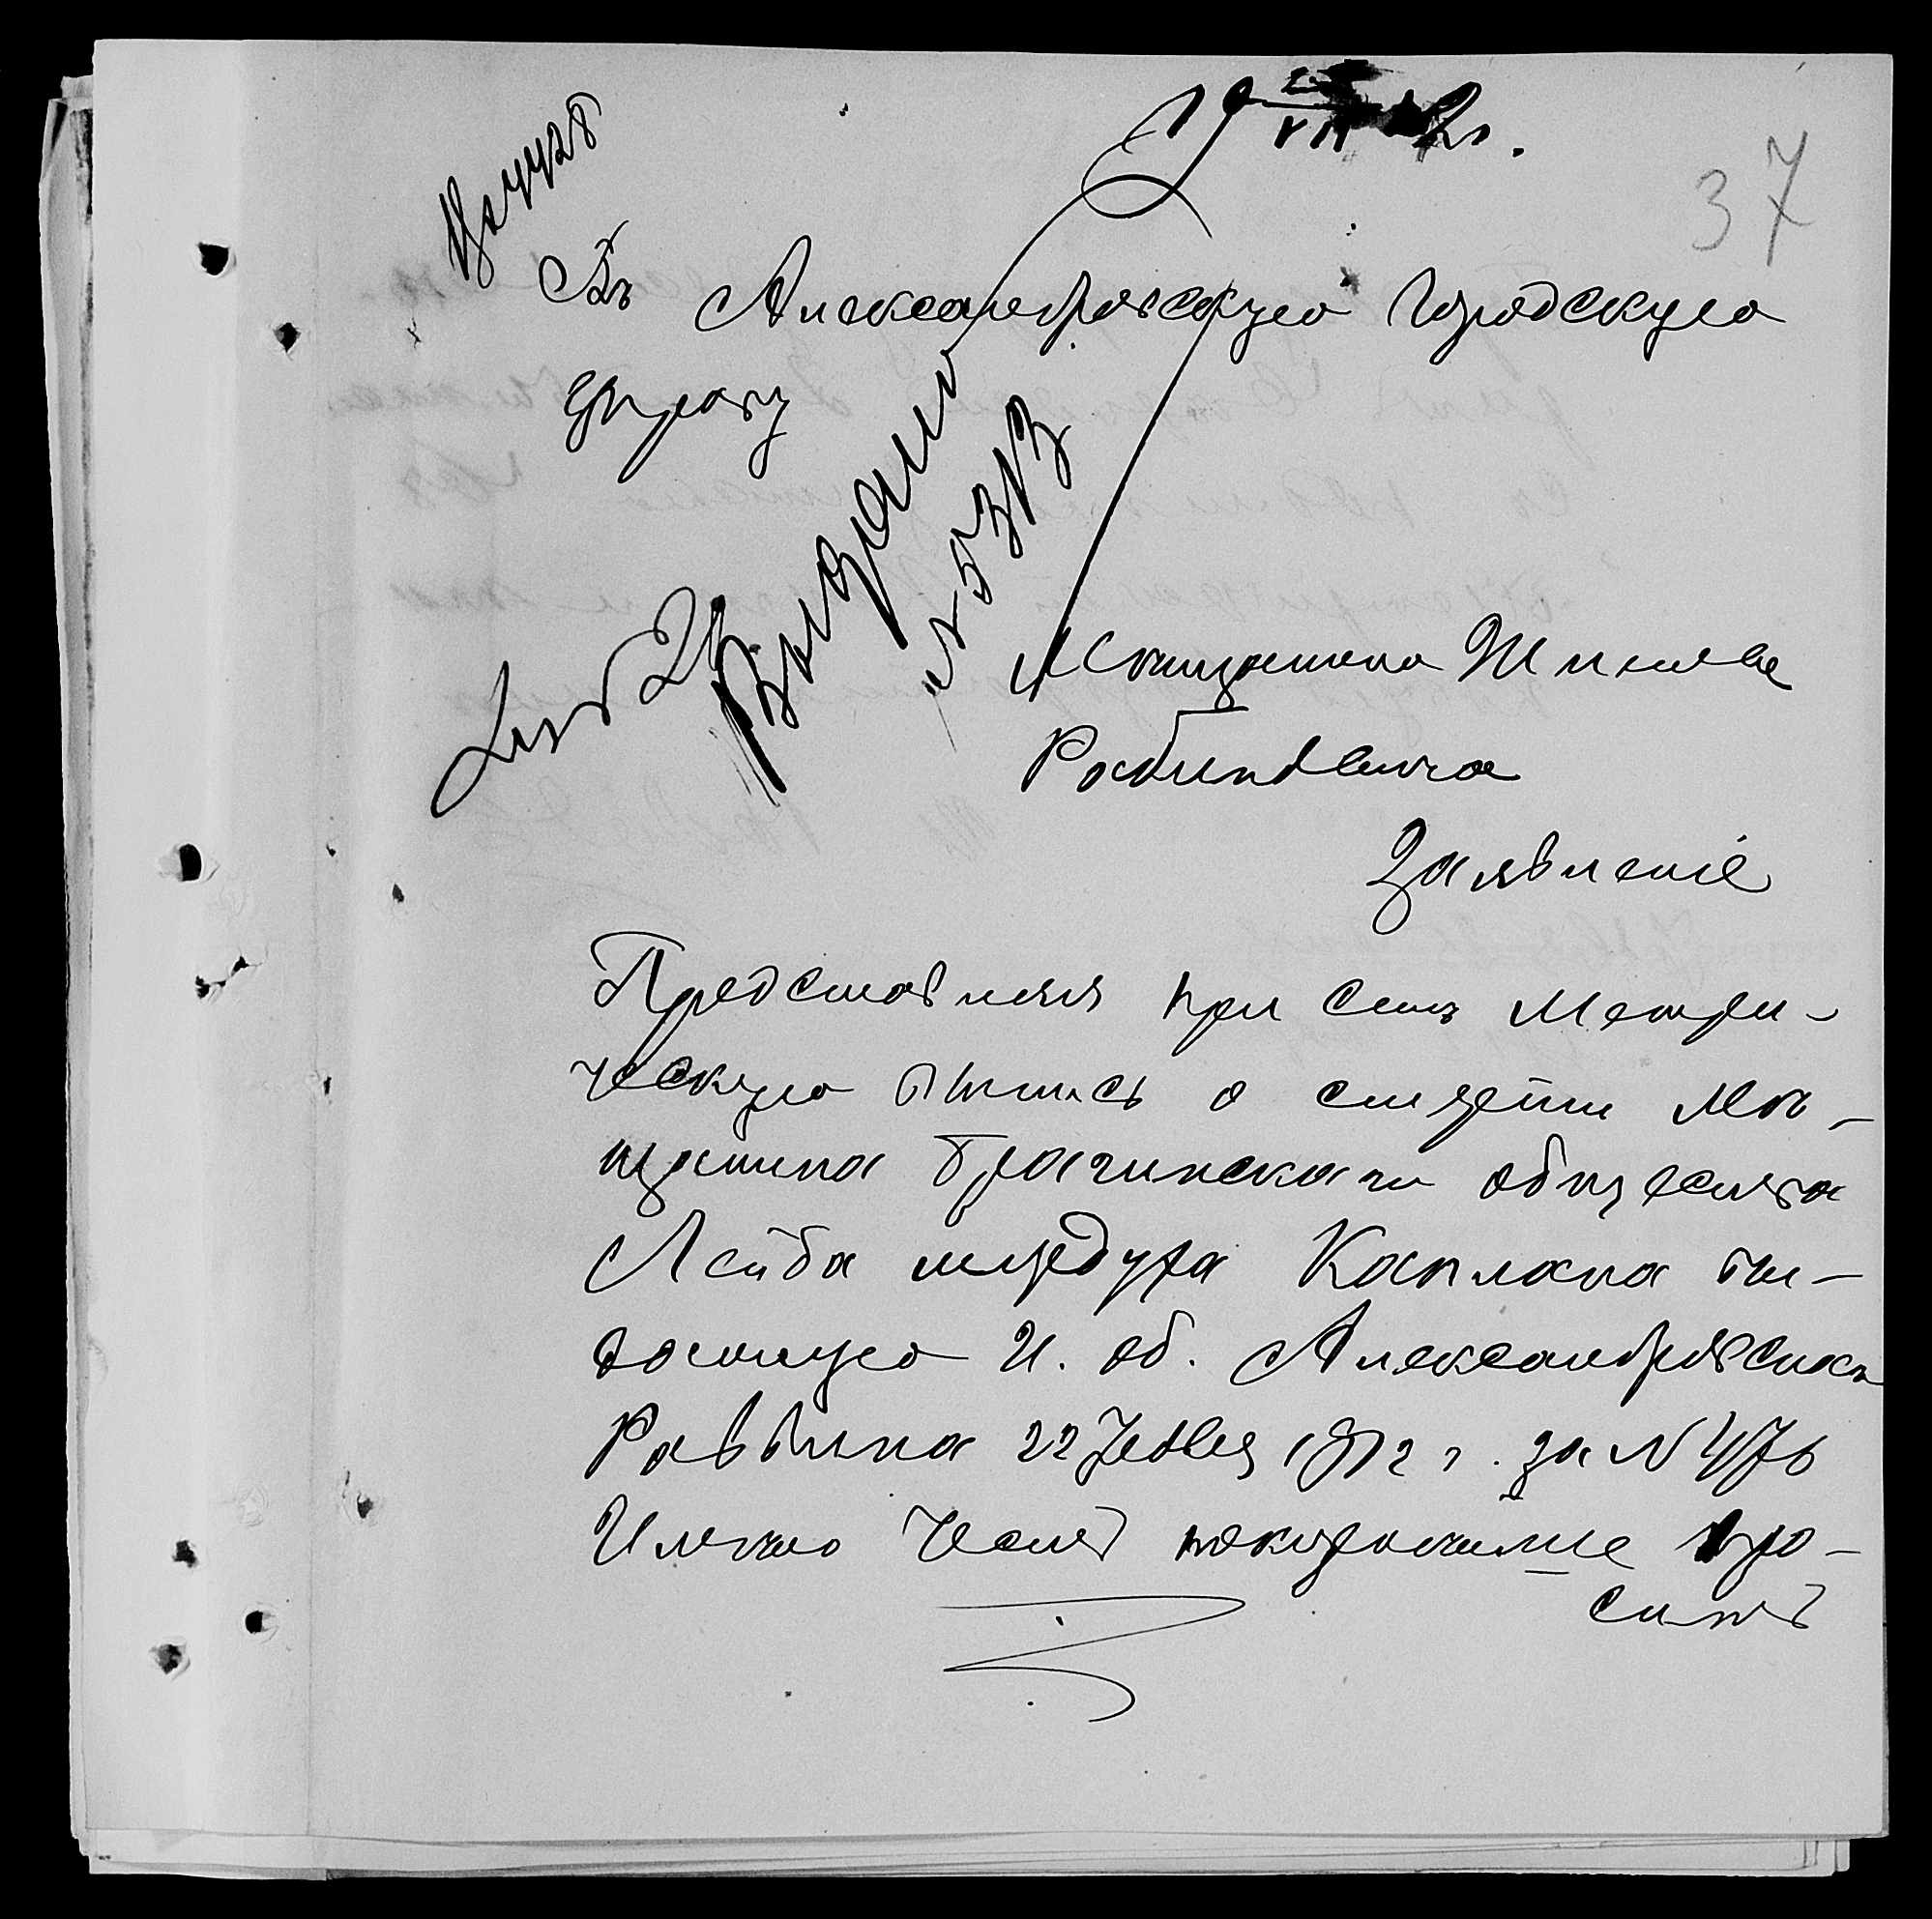 37
Въ Александровскую Городскую
Управу
Выдано
№ 5313
Мѣщанина Шмилева
Рабиновича
Заявленіе
Представляя при семъ Метри-
ческую выпись о смерти мѣ-
щанина Брагинскаго общества
Лейба Каплана вы-
данную И. об. Александровскаго
Раввина 22 1912 г. за № 476
Имѣю честь покорнѣйше про-
сить